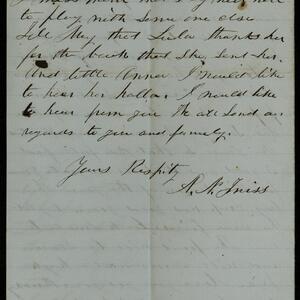 to play with some one else
Tell May that Lula thanks her
for the book that She Send her.
And Little Anna I would like
to hear her hallow. I would like
to hear from you We all Send our
regards to you and family.
Yours Respity
A. A.